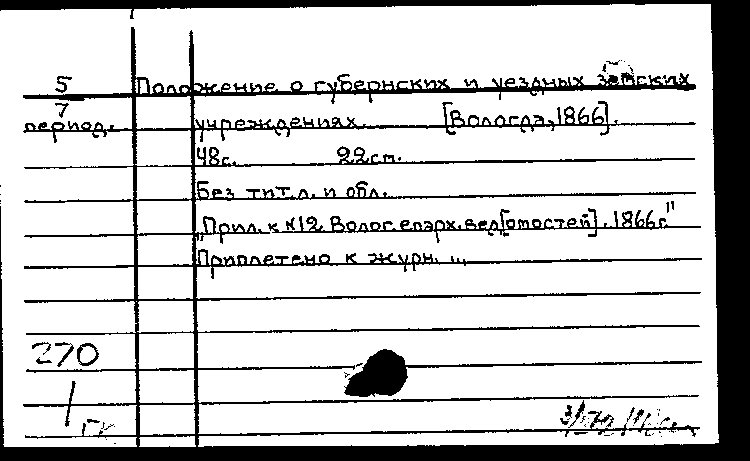 5 Положение о губернских и уездных земских
7
период. учреждениях. [Вологда, 1866].
48с. 22см.
Без тит.л. и обл.
"Прил. к №12 Волог. епарх. вед[омостей]. 1866г."
Приплетено к журн. "„
270
/
ГК